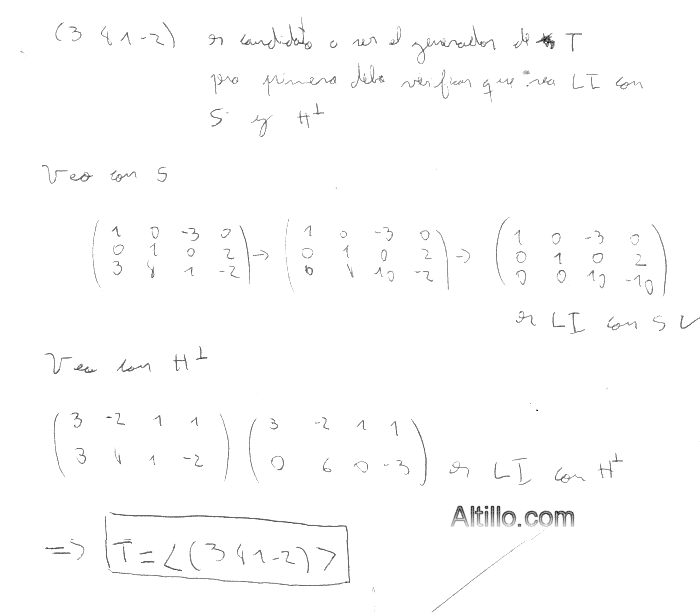 (3 4 1 -2) es candidato a ser el generador de T
pero primero debo verificar que sea LI con
S y H⊥
Veo con S
( 1 0 -3 0 ; 0 1 0 2 ; 3 4 1 -2 ) → ( 1 0 -3 0 ; 0 1 0 2 ; 0 4 10 -2 ) → ( 1 0 -3 0 ; 0 1 0 2 ; 0 0 10 -10 )
es LI con S ✓
Veo con H⊥
( 3 -2 1 1 ; 3 4 1 -2 ) ( 3 -2 1 1 ; 0 6 0 -3 ) es LI con H⊥
Altillo.com
=> T = < (3 4 1 -2) >